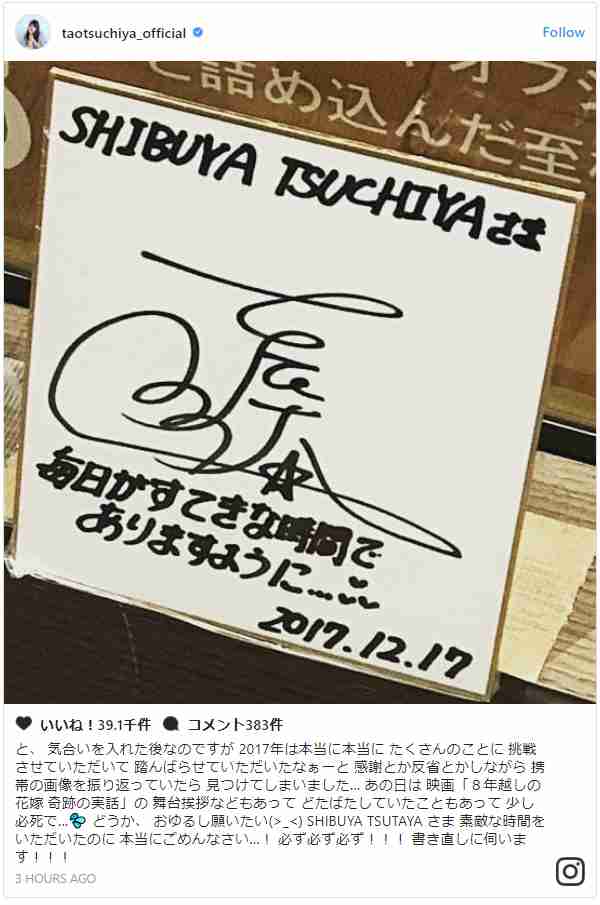 taotsuchiya_official
Follow
オフシ
と詰め込んだ至
SHIBUYA TSUCHIYAさま
毎日がすてきな時間で
ありますように...
2017.12.17
いいね！39.1千件 コメント383件
と、 気合いを入れた後なのですが 2017年は本当に本当に たくさんのことに 挑戦
させていただいて 踏んばらせていただいたなぁーと 感謝とか反省とかしながら 携
帯の画像を振り返っていたら 見つけてしまいました... あの日は 映画「８年越しの
花嫁 奇跡の実話」の 舞台挨拶などもあって どたばたしていたこともあって 少し
必死で... どうか、 おゆるし願いたい(>_<) SHIBUYA TSUTAYA さま 素敵な時間を
いただいたのに 本当にごめんなさい...！ 必ず必ず必ず！！！ 書き直しに伺いま
す！！！
3 HOURS AGO